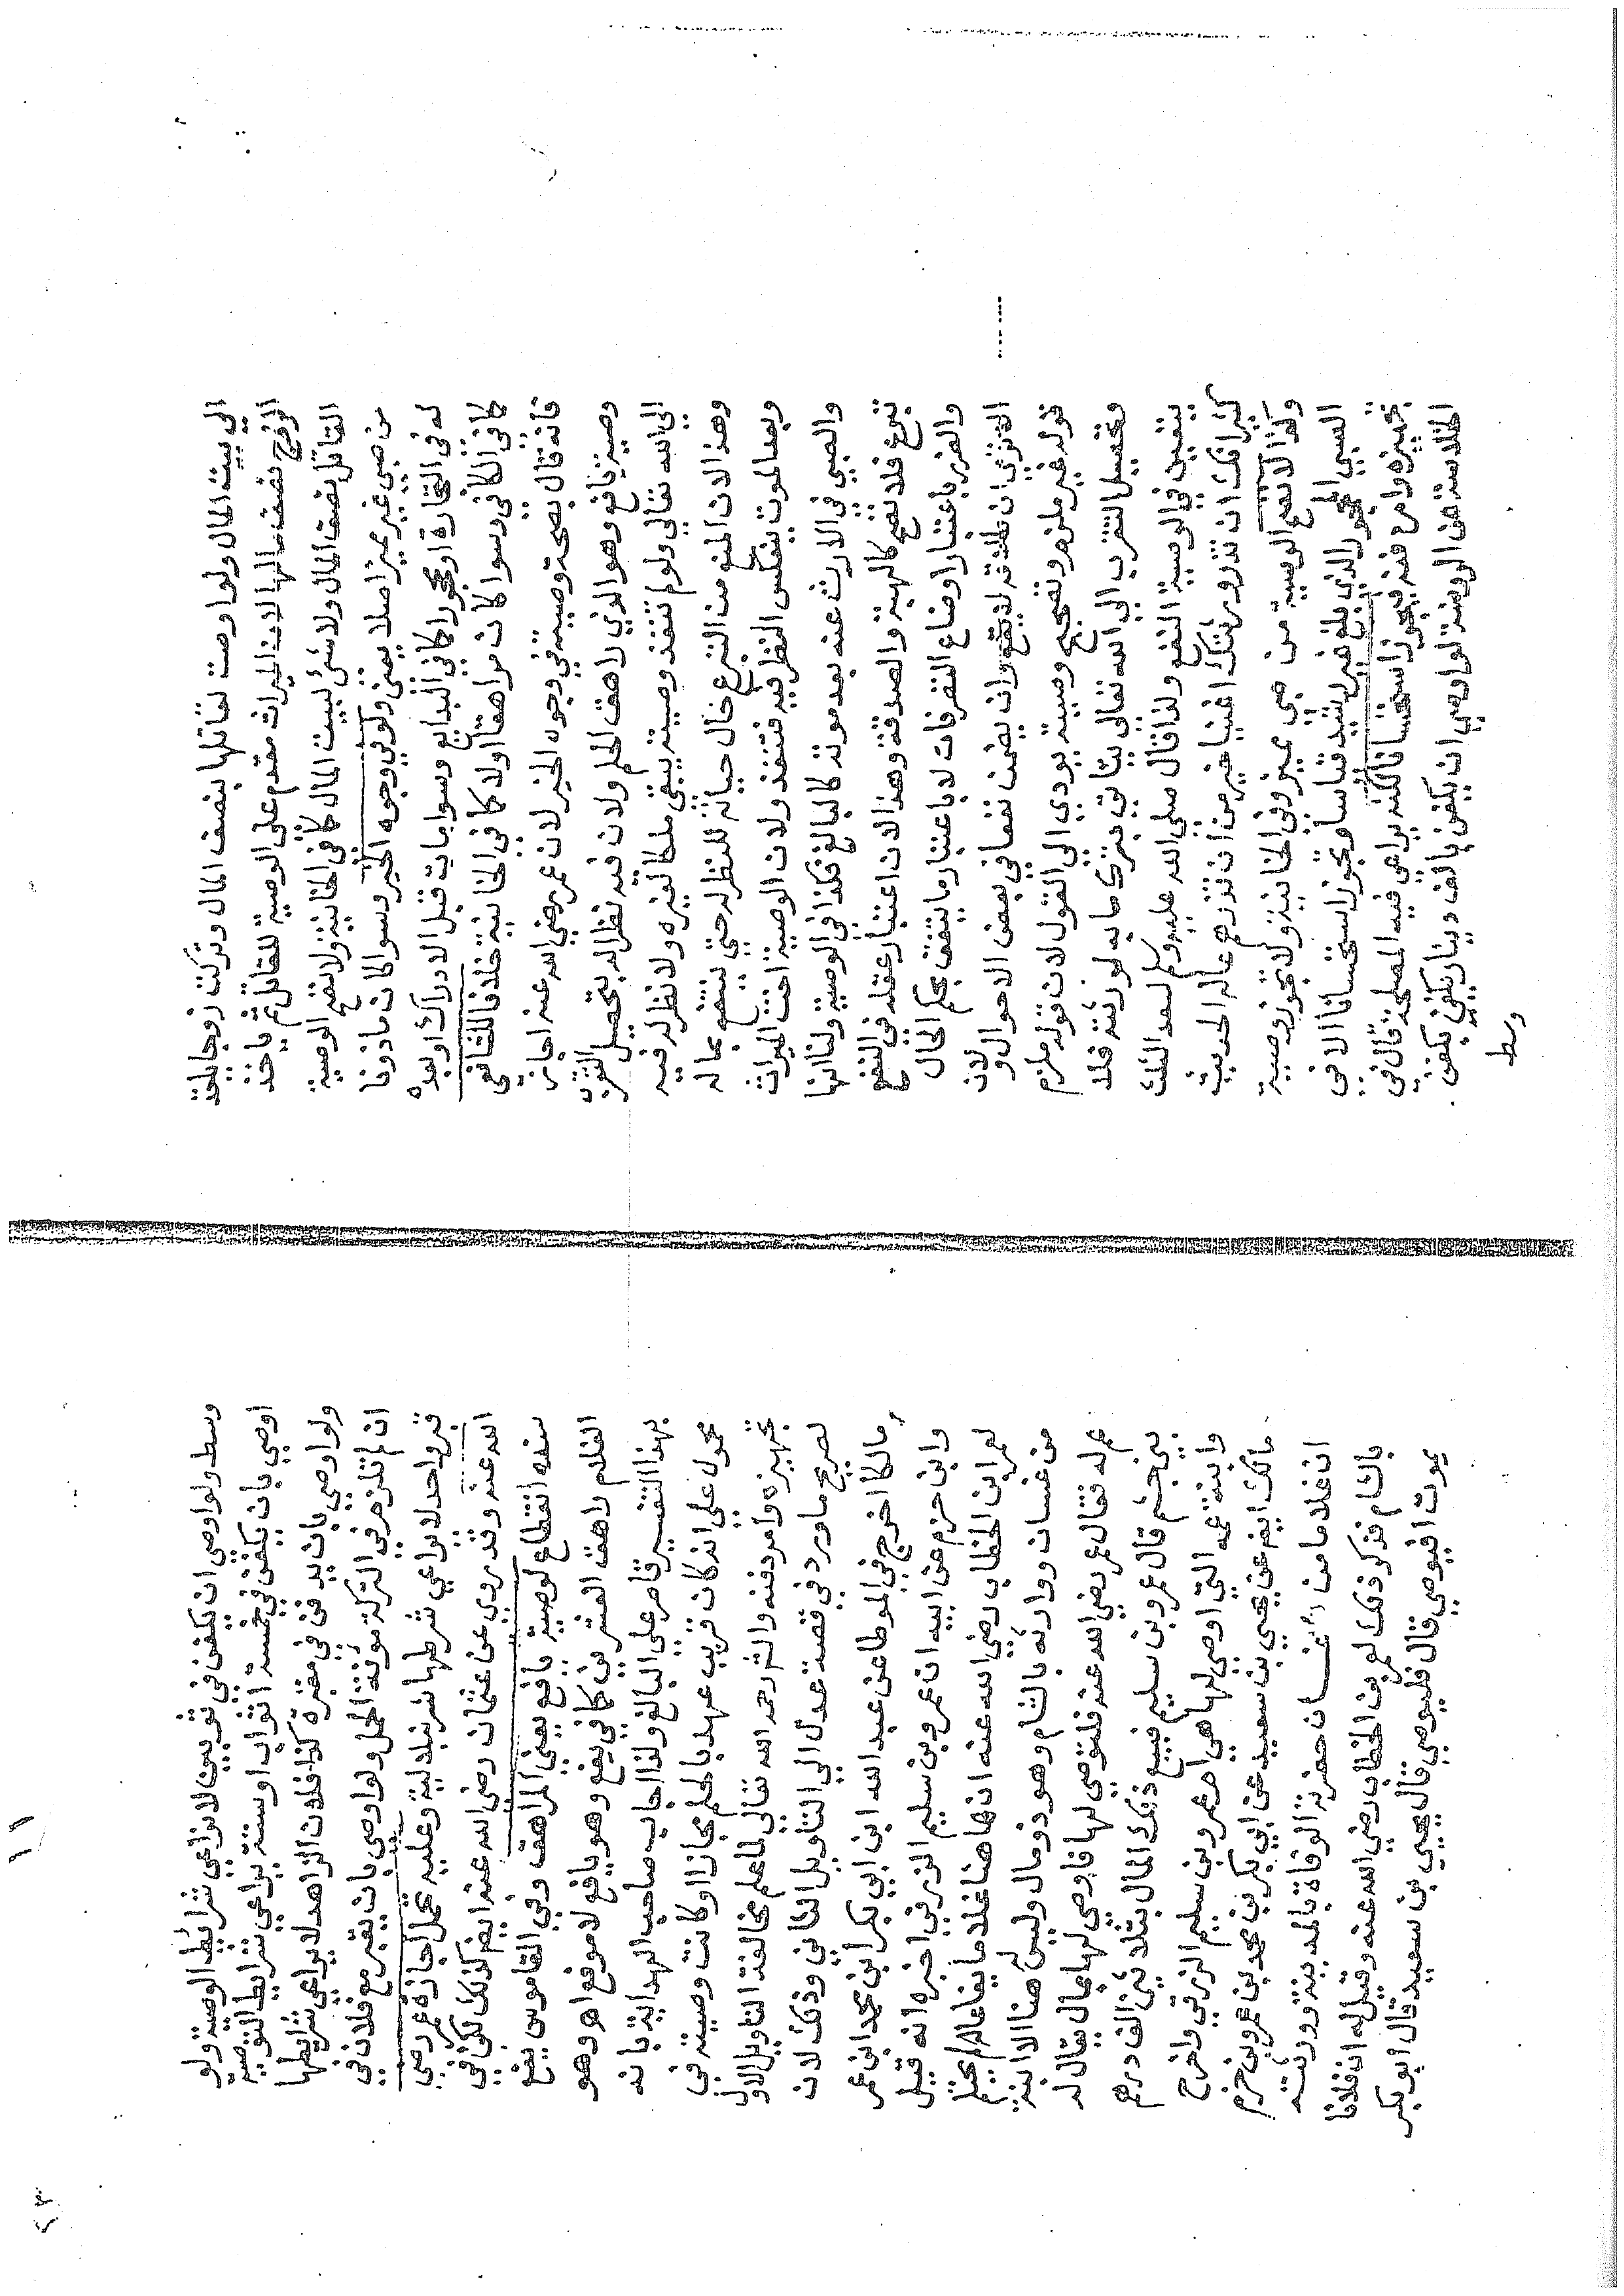 الي بيت المال ولو اوصت لقاتلها بنصف المال وتركت زوجا يأخذ
الزوج نصف مالها لان الميراث مقدم على الوصية للقاتل ثم ياخذ
القاتل نصف المال ولا شئ لبيت المال كما في الخانية ولا تصح الوصية
من صبي غير مميز اصلا يعني ولو في وجوه الخير وسوا كان ماذونا
له في التجارة او محجورا كما في البدايع وسوا مات قبل الادراك او بعده
كما في الكافي وسوا كان مراهقا اولا كما في الخانية خلافا للشافعي
فانه قال بصحة وصيته في وجوه الخير لان عمر رضي الله عنه اجاز
وصية يافع وهو الذي راهق الحلم ولان فيه نظرا له بتحصيل التقرب
الي الله تعالى ولو لم تنفذ وصيته يبقى ملكا لغيره ولا نظر له فيه
وهذا لان المنع من التبرع خال حياته للنظر له حتي ينتفع بماله
وبعد الموت ينعكس النظر فيه فتنفذ ولان الوصية اخت الميراث
والصبي في الارث عنه بعد موته كالبالغ فكذا في الوصية ولنا انها
تبرع فلا تصح كالهبة والصدقة وهذا لان اعتبار عقله في النفع
والضرر باعتبار اوضاع التصرفات لا باعتبار ما يتفق بحكم الحال
الا تري ان طلاقه لا يقع وان يضمن نفعا في بعض الاحوال ولان
قوله غير ملزم وتصحيح وصيته يودي الي القول لان قوله ملزم
وتحصيل التقرب الي الله تعالى يتأتي بترك ماله لورثته فلا
يتعين في الوصية النفع ولذا قال صلى الله عليه وسلم لسعد الثلث
كثير انك ان تذر ورثتك اغنيا خير من ان تذرهم عالة الحديث
وكذا لا تصح الوصية من صبي مميز وفي الخانية ولا تجوز وصية
الصبي المحجور الذي بلغ غير رشيد قياسا وتجوز استحسانا الا في
تجهيزه وامر دفنه فيجوز استحسانا لكنه يراعي فيه المصلحة قال في
الخلاصة هن الوصية لو اوصي ان يكفن بالف دينار يكفن بكفن
وسط
وسط ولو اوصي ان يكفن في ثوبين لا تراعي شرايط الوصية ولو
اوصي بان يكفن في خمسة اثواب او ستة يراعي شرايط التوصية
ولو اوصي بان يدفن في مقبرة كذا فلان الزاهد لا يراعي شرايطها
ان لم تلزم في التركة مؤنة الحمل ولو اوصي بان يقبر مع فلان في
قبر واحد لا يراعي شرطها شرنبلالية وعليه تحمل اجازة عمر رضي
الله عنه وقد روي عن عثمان رضي الله عنه ايضا كذلك لكن في
سنده انقطاع لوصية يافع يعني المراهق وفي القاموس يفع
الغلام راهق العشرين كما في يفع وهو يافع لا موفع اهـ وهو
بهذا التفسير قاصر على البالغ ولذا اجاب صاحب الهداية بانه
محمول على انه كان قريب عهد بالحلم مجازا او كانت وصيته في
تجهيزه وامر دفنه والشرحه الله تعالى لما علم مخالفة التاويل الاول
لصريح ما ورد في قصته عدل الي التاويل الثاني وذلك لان
مالكا اخرج في الموطا عن عبد الله ابن ابي بكر ابن محمد ابن عمر
وابن حزم عن ابيه ان عمرو بن سليم الزرقي اخبره انه قيل
لعمر ابن الخطاب رضي الله عنه ان هاهنا غلاما يفاعا لم يحتلم
من غسان ووارثه بالشام وهو ذو مال وليس هنا الا ابنة
عم له فقال عمر رضي الله عنه فلتوصي لها فاوصي لها بمال يقال له
بير جشم قال عمرو بن سليم فبيع ذلك المال بثلاثين الف درهم
وابنة عمه التي اوصي لها هي ام عمرو بن سليم الزرقي واخرج
مالك ايضا عن يحيي بن سعيد عن ابي بكر بن محمد بن عمرو بن حزم
ان غلاما من غسان حضرته الوفاة بالمدينة وورثته
بالشام فذكر ذلك لعمر بن الخطاب رضي الله عنه وقيل له ان فلانا
يموت افيوصي قال فليوصي قال يحيي بن سعيد قال ابو بكر